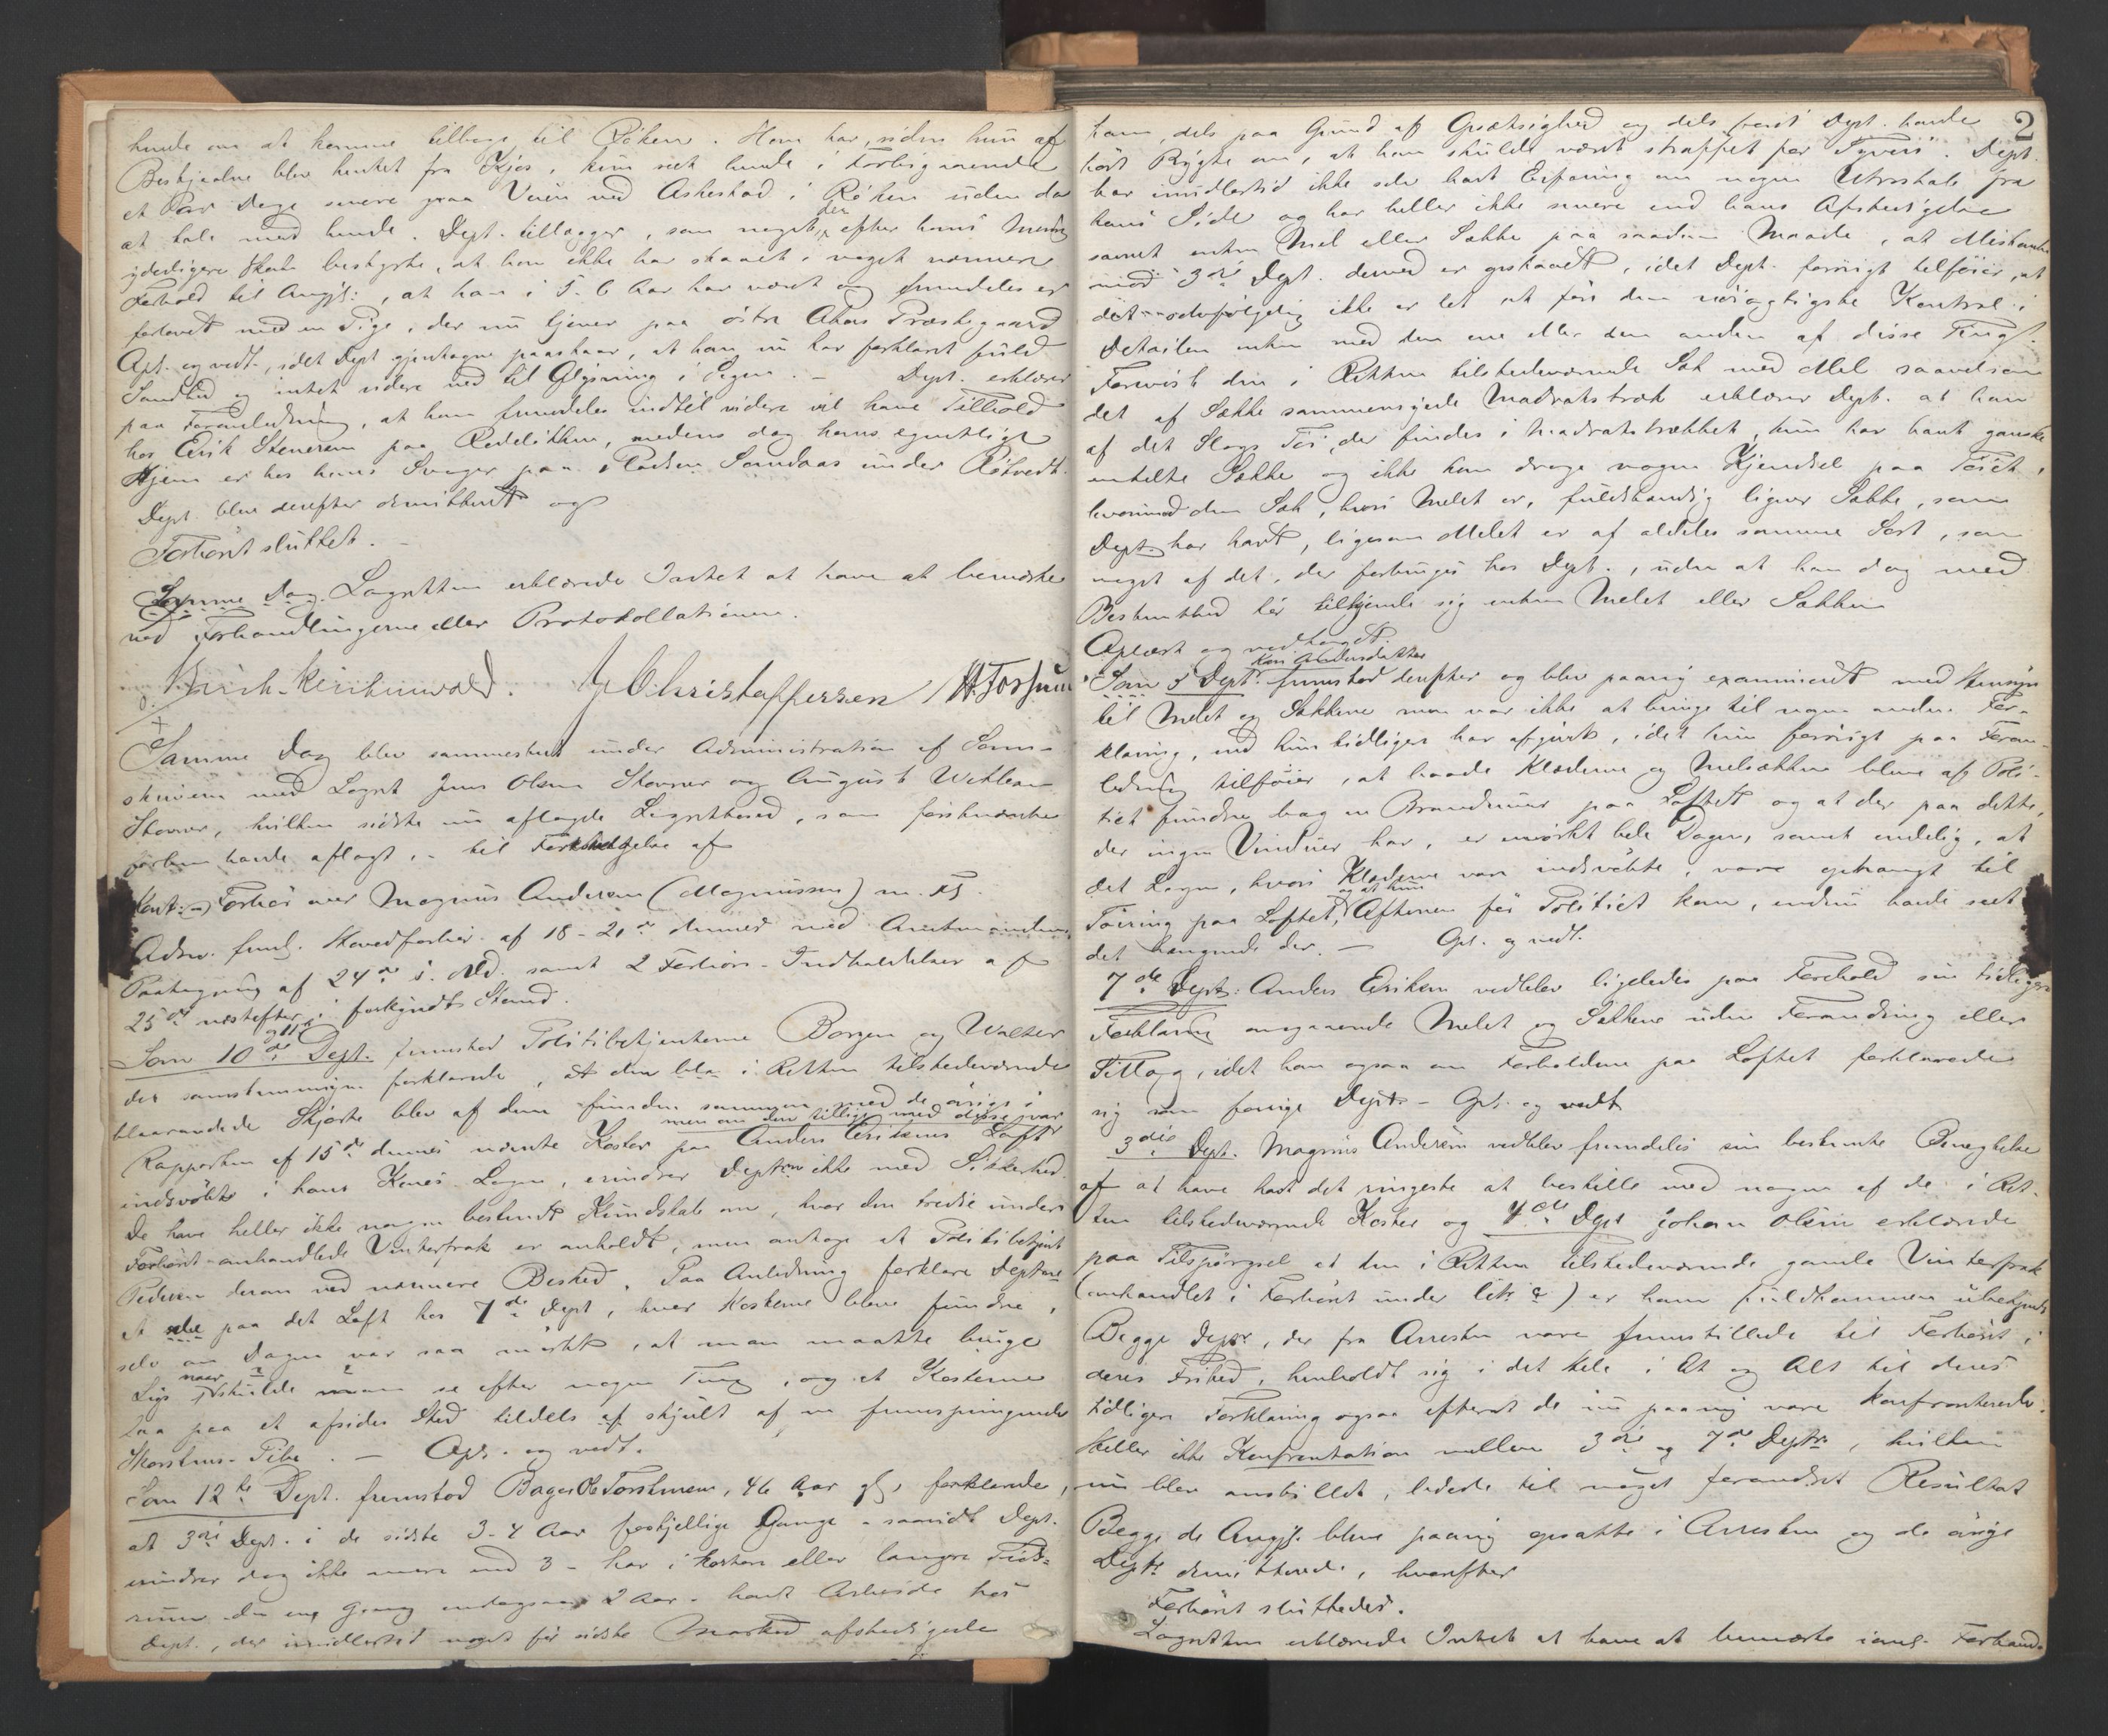 hende om at komme tilbage til Røken. Han har, siden hun af
Beskjæalne blev hentet fra Kjøs, kun seet hende i Forbigaaende
et Par Dage senere paa Veien ved Askestad i Røken uden da
at tale med hende. Dept. tillægger, som noget, der efter hans Mening
yderligere skal bestyrke, at han ikke har staaet i noget nærmere
Forhold til Angjl:, at han i 5-6 Aar har været og fremdeles er
forlovet med en Pige, der nu tjener paa østre Akers Præstegaard
Opl. og vedt., idet Dept gjentagne paastaar, at han nu har forklaret fuld
Sandhed og intet videre ved til Oplysning i Sagen. - Dept. erklærer
paa Foranledning, at han fremdeles indtil videre vil have Tilhold
hos Erik Stenersen paa Rødeløkken, medens dog hans egentlige
Hjem er hos hans Svoger paa Pladsen Sandaas under Røtvedt.
Dept. blev derefter demitteret og
Forhøret sluttet. -
Samme Dag. Lagretten erklærede Intet at have at bemærke
ved Forhandlingerne eller Protokollationen.
Birch-Reichenwald. J Christoffersen H Fossum
Samme Dag blev sammesteds under Administration af Soren-
skriveren med Lagret Jens Olsen Stovner og August Wetlesen
Stovner, hvilken sidste nu aflagde Lagretteed, som førstnævnte
forhen havde aflagt, - til Fortsættelse af
Forhør over Magnus Andersen (Magnussen) m. Fl.
Adm. freml. Hovedforhør af 18-21de dennes med Amtmandens
Paategning af 24de s. Md. samt 2 Forhørs-Indkaldelser af
25de næstefter i forkyndt Stand.
Som 10de og 11te Dept. fremstod Politibetjenterne Borgen og Walter
der samstemmigen forklarede, at den bla. i Retten tilstedeværende
blaarandede Skjorte blev af dem funden sammen med de øvrige i
Rapporten af 15de dennes nævnte Koster paa Anders Eriksens Loft
men om den tillige med disse var
indsvøbt i hans Kones Lagen, erindrer Depterne ikke med Sikkerhed.
De have heller ikke nogen bestemt Kundskab om, hvor den tredie under
Forhøret omhandlede Vinterfrak er anholdt, men antage at Politibetjent
Pedersen derom ved nærmere Besked. Paa Anledning forklare Depterne
at paa det Loft hos 7de Dept, hvor Kosterne bleve fundne,
selv om Dagen var saa mørkt, at man maatte bruge
Lys naar man skulde se efter nogen Ting, og at Kosterne
laa paa et afsides Sted tildels skjult af en fremspringende
Skorstens-Pibe. - Opl. og vedt.
Som 12te Dept. fremstod Bager Ole Torstensen, 46 Aar gl, forklarende,
at 3die Dept. i de sidste 3-4 Aar forskjellige Gange - saavidt Dept.
erindrer dog ikke mere end 3 - har i kortere eller længere Tids-
rum - den ene Gang endogsaa 2 Aar - havt Arbeide hos
Dept., der imidlertid noget før sidste Marked afskedigede
2
ham, dels paa Grund af Opsætsighed og dels fordi Dept. havde
hørt Rygte om, at han skulde været straffet for Tyveri. Dept.
har imidlertid ikke selv havt Erfaring om nogen Utroskab fra
hans Side og har heller ikke senere end hans Afskedigelse
savnet enten Mel eller Sække paa saadan Maade, at Mistanke
mod 3die Dept. derved er opstaaet, idet Dept. forøvrigt tilføier, at
det selvfølgelig ikke er let at føre den nøiagtigste Kontrol i
Detailen enten med den ene eller den anden af disse Ting.
Forevist den i Retten tilstedeværende Sæk med Mel saavelsom
det af Sække sammensyede Madratstræk erklærer Dept. at han
af det Slags Tøi, der findes i Madratstrækket, kun har havt ganske
enkelte Sække og ikke kan drage nogen Kjendsel paa Tøiet,
hvorimod den Sæk, hvori Melet er, fuldstændig ligner Sække, som
Dept. har havt, ligesom Melet er af aldeles samme Sort, som
noget af det, der forbruges hos Dept., uden at han dog med
Bestemthed tør tilkjende sig enten Melet eller Sækken
Oplæst og vedtaget.
Kari Andersdatter
Som 5te Dept. fremstod derefter og blev paany examineret med Hensyn
til Melet og Sækkene men var ikke at bringe til nogen anden For-
klaring, end hun tidligere har afgivet, idet hun forøvrigt paa Foran-
ledning tilføier, at baade Klæderne og Melsækken bleve af Poli-
tiet fundne bag en Brandmur paa Loftet og at der paa dette,
der ingen Vinduer har, er mørkt hele Dagen, samt endelig, at
det Lagen, hvori Klæderne vare indsvøbte, vare ophængt til
Tørring paa Loftet, og at hun Aftenen før Politiet kom, endnu havde seet
det hængende der. - Opl. og vedt.
7de Dept. Anders Eriksen vedblev ligeledes paa Forehold sin tidligere
Forklaring angaaende Melet og Sækkene uden Forandring eller
Tillæg, idet han ogsaa om Forholdene paa Loftet forklarede
sig som forrige Dept. - Opl. og vedt
3die Dept. Magnus Andersen vedblev fremdeles sin bestemte Benegtelse
af at have havt det ringeste at bestille med nogen af de i Ret-
ten tilstedeværende Koster og 4de Dept Johan Olsen erklærede
paa Tilspørgsel at den i Retten tilstedeværende gamle Vinterfrak
(omhandlet i Forhøret under litr c) er ham fuldkommen ubekjendt
Begge Deptr, der fra Arresten vare fremstillede til Forhøret i
deres Frihed, henholdt sig i det Hele i Et og Alt til deres
tidligere Forklaring ogsaa efterat de nu paany vare konfronterede.
Heller ikke Konfrontation mellem 3die og 7de Deptr, hvilken
nu blev anstillet, ledede til noget forandret Resultat
Begge de Angjl. bleve paany opsatte i Arresten og de øvrige
Deptr demitterede, hvorefter
Forhøret sluttedes.
Lagretten erklærede Intet at have at bemærke ianl. Forhand-